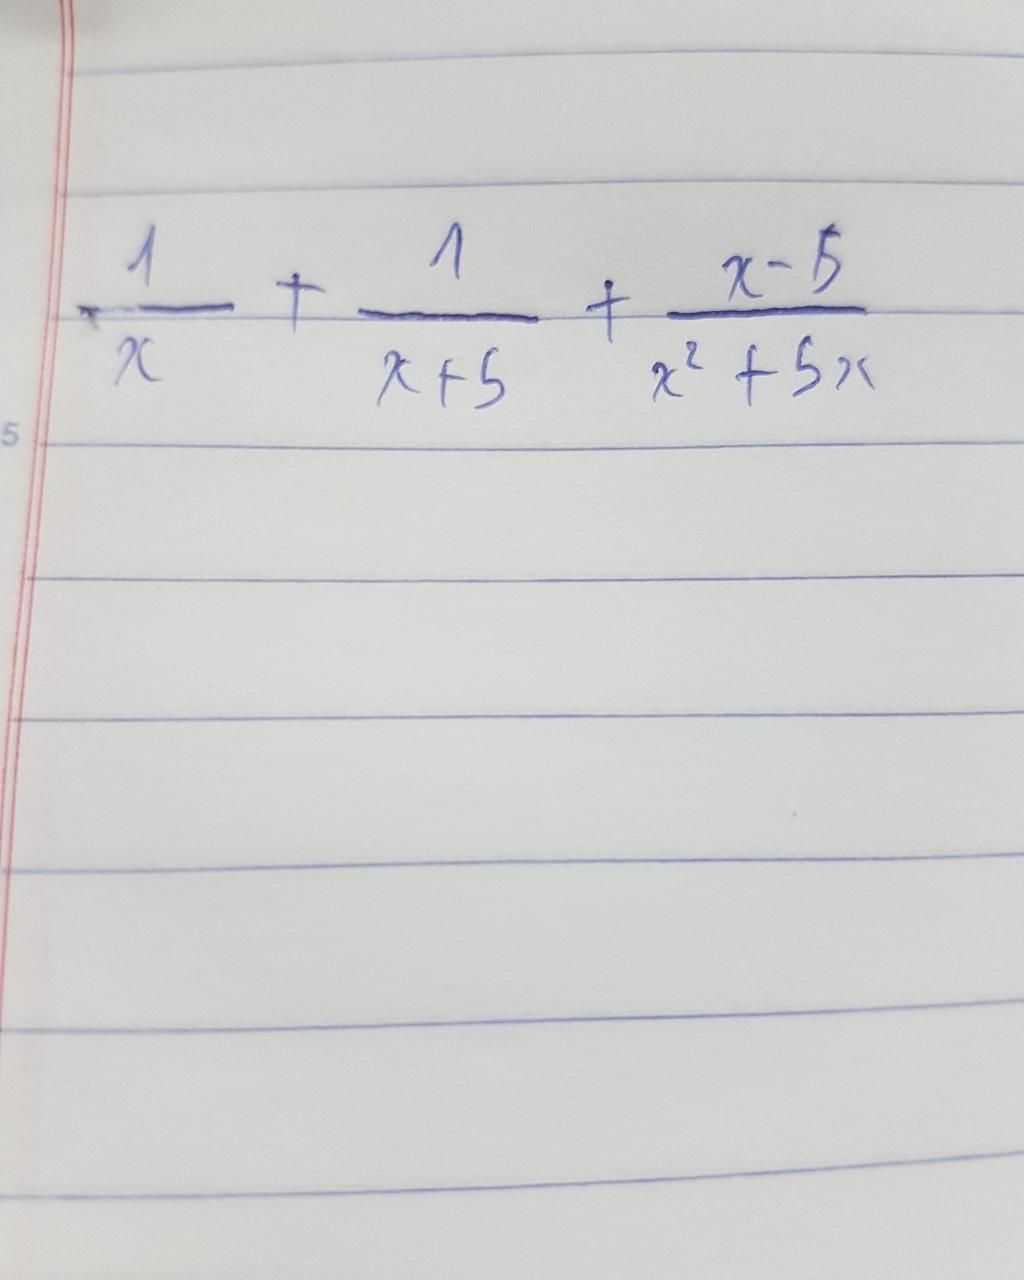 1/x + 1/(x+5) + (x-5)/(x² + 5x)
5